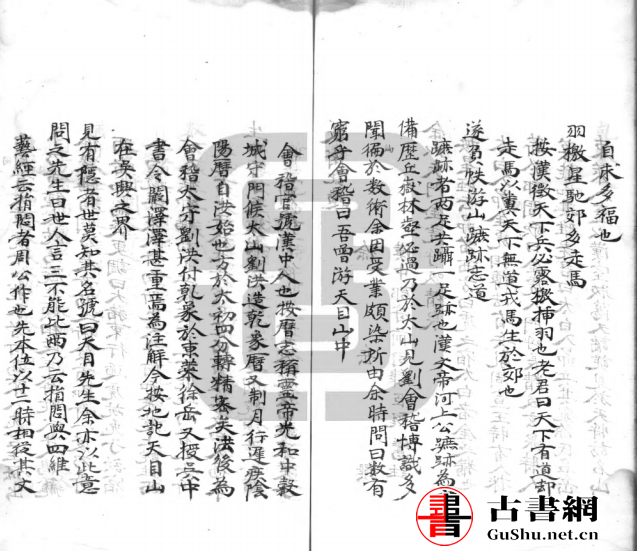 自求多福也
羽檄星馳郊多走馬
按漢徵天下兵必露檄插羽也老君曰天下有道却
走馬以糞天下無道戎馬生於郊也
遂負帙游山蹠跡志道
蹠跡者兩足共躡一足跡也漢文帝河上公蹠跡為
備歷丘嶽林壑必過乃於太山見劉會稽博識多
聞徧於數術余因受業頗染所由余時問曰數有
窮乎會稽曰吾曾游天目山中
會稽官號漢中人也按曆志稱靈帝光和中穀
城守門候太山劉洪造乾象曆又制月行遲疾陰
陽曆自洪始也方於太初四分轉精審矣法後為
會稽太守劉洪付乾象於東萊徐岳又授吳中
書令闞澤澤甚重焉為注解今按地記天目山
在吳興之界
見有隱者世莫知其名號曰天目先生余亦以此意
問之先生曰世人言三不能比兩乃云捐悶與四維
藝經云捐悶者周公作也先本位以十二時相從其文
古書網
GuShu.net.cn